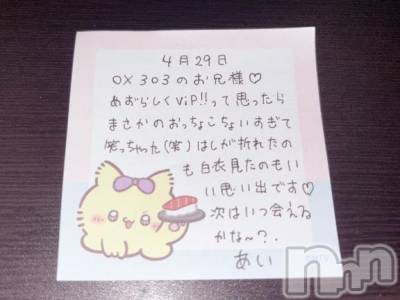 4月29日
OX303のお兄様♡
めずらしくViP!!って思ったら
まさかのおっちょこちょいすぎて
笑っちゃった(笑)はしが折れたの
も白衣見たのもい
い思い出です♡
次はいつ会える
かな〜?.
あい